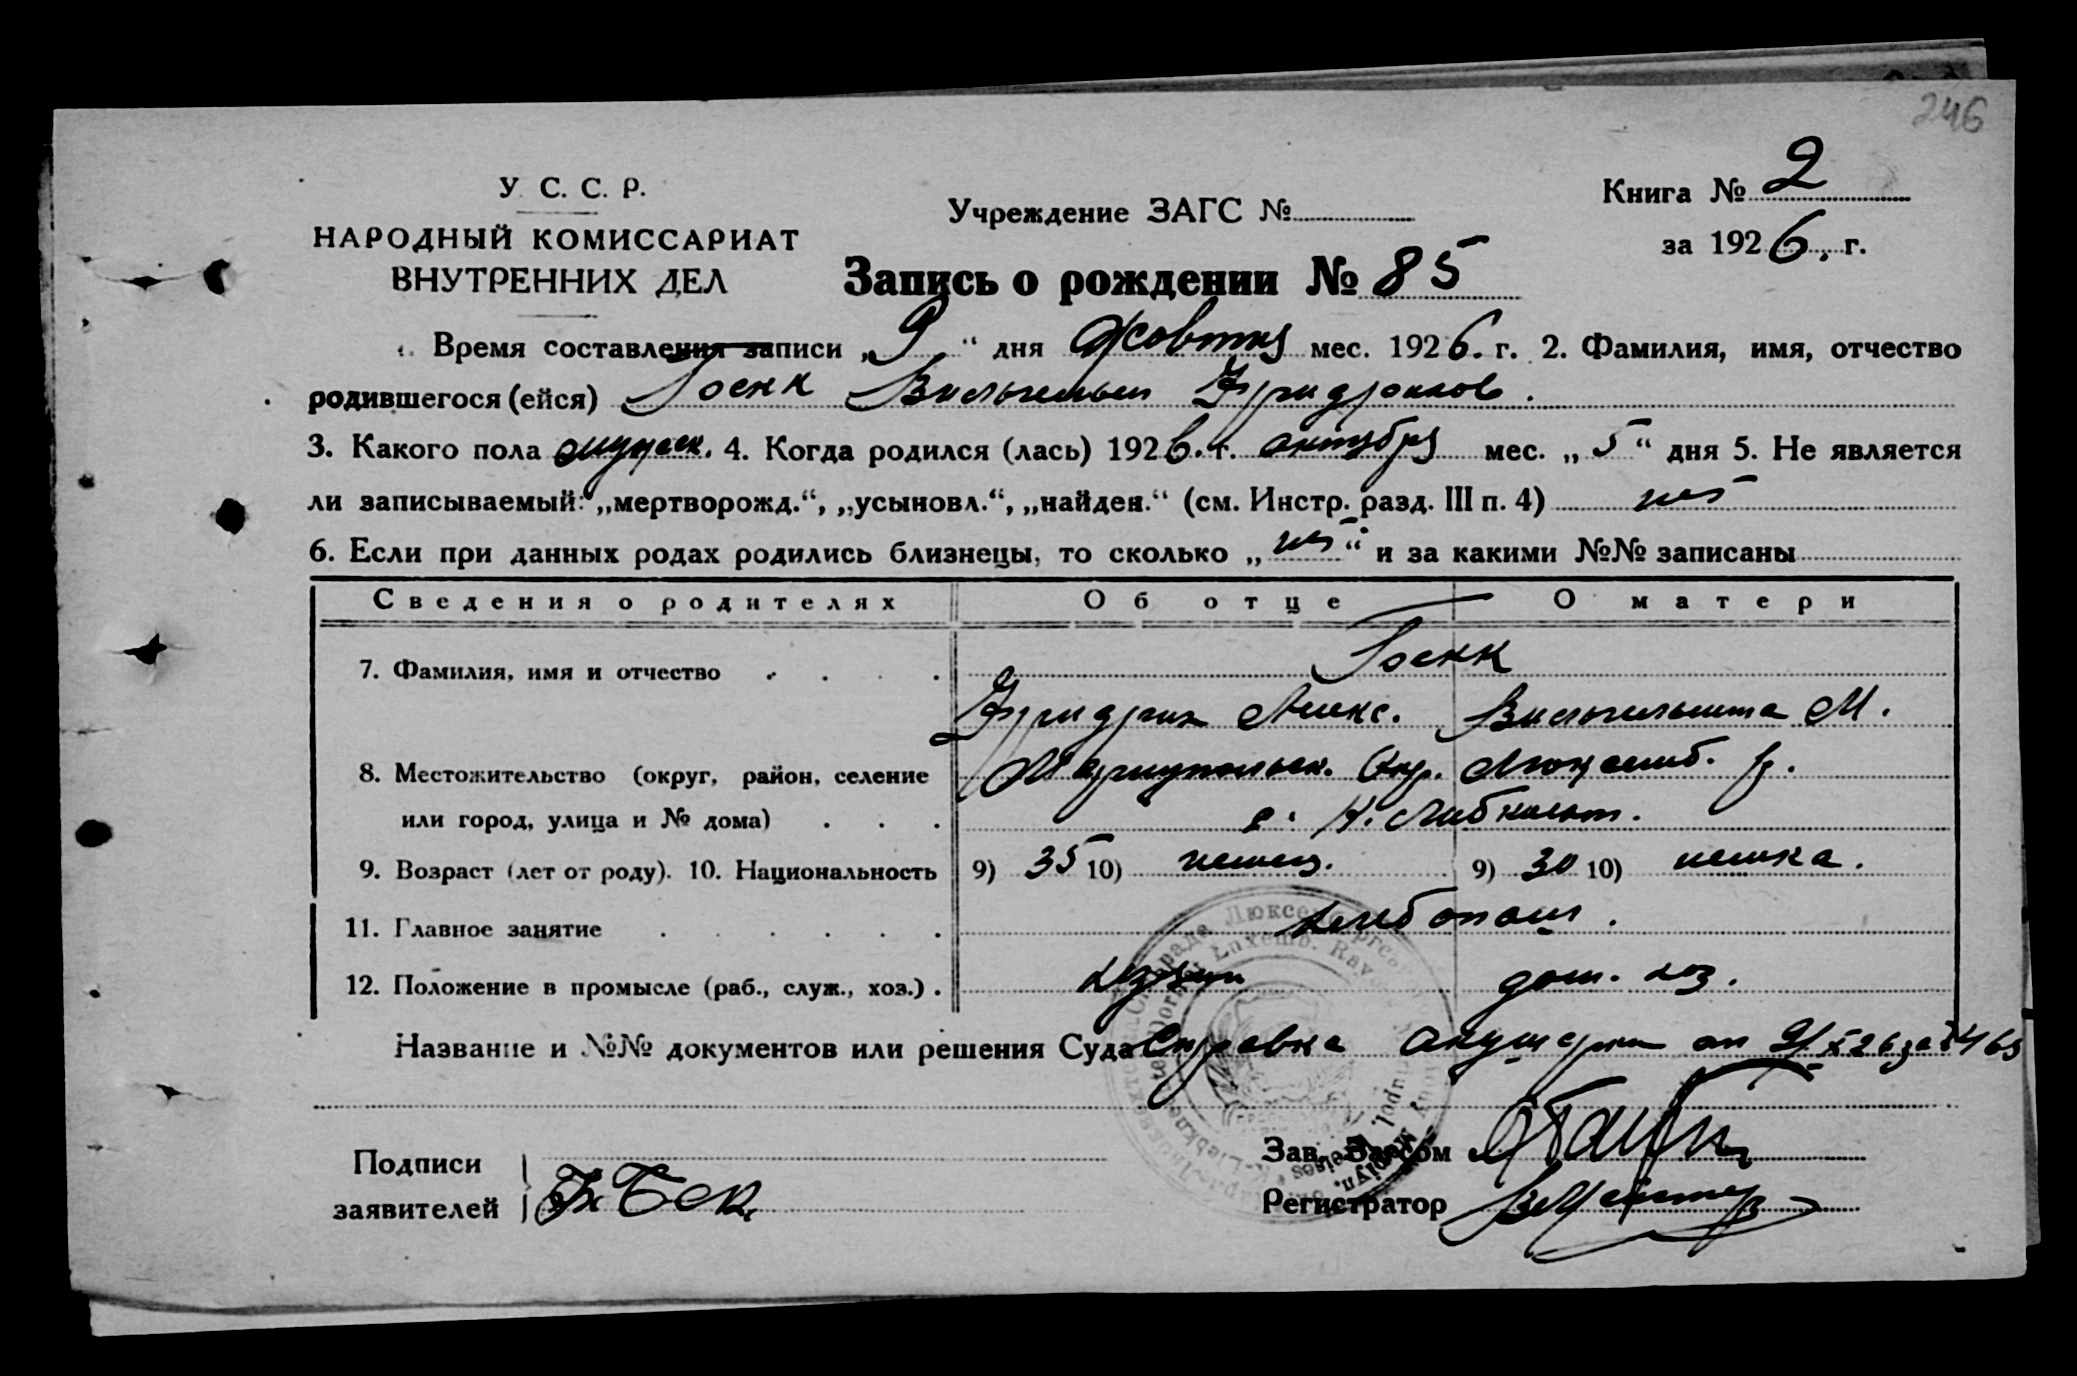 246
У. С. С. Р.
НАРОДНЫЙ КОМИССАРИАТ
ВНУТРЕННИХ ДЕЛ
Учреждение ЗАГС №
Книга № 2
за 1926. г.
Запись о рождении № 85
1. Время составления записи „9“ дня Жовтня мес. 1926. г. 2. Фамилия, имя, отчество
родившегося (ейся) Госкк Вильгельм Фридрихов.
3. Какого пола мужск. 4. Когда родился (лась) 1926. г. октября мес. „5“ дня 5. Не является
ли записываемый: „мертворожд.“, „усыновл.“, „найден.“ (см. Инстр. разд. III п. 4) нет
6. Если при данных родах родились близнецы, то сколько „нет“ и за какими №№ записаны
Сведения о родителях Об отце О матери
7. Фамилия, имя и отчество Госкк
Фридрих Алекс. Вильгельмина М.
8. Местожительство (округ, район, селение Мариупольск. Окр. Люксемб. р.
или город, улица и № дома) с. К. Либкнехт.
9. Возраст (лет от роду). 10. Национальность 9) 35 10) немец. 9) 30 10) немка.
11. Главное занятие хлебопаш.
12. Положение в промысле (раб., служ., хоз.) хозяин дом. хоз.
Название и №№ документов или решения Суда Справка акушерки от 9/X 26 за № 465
Подписи
заявителей
Зав. Загсом
Регистратор